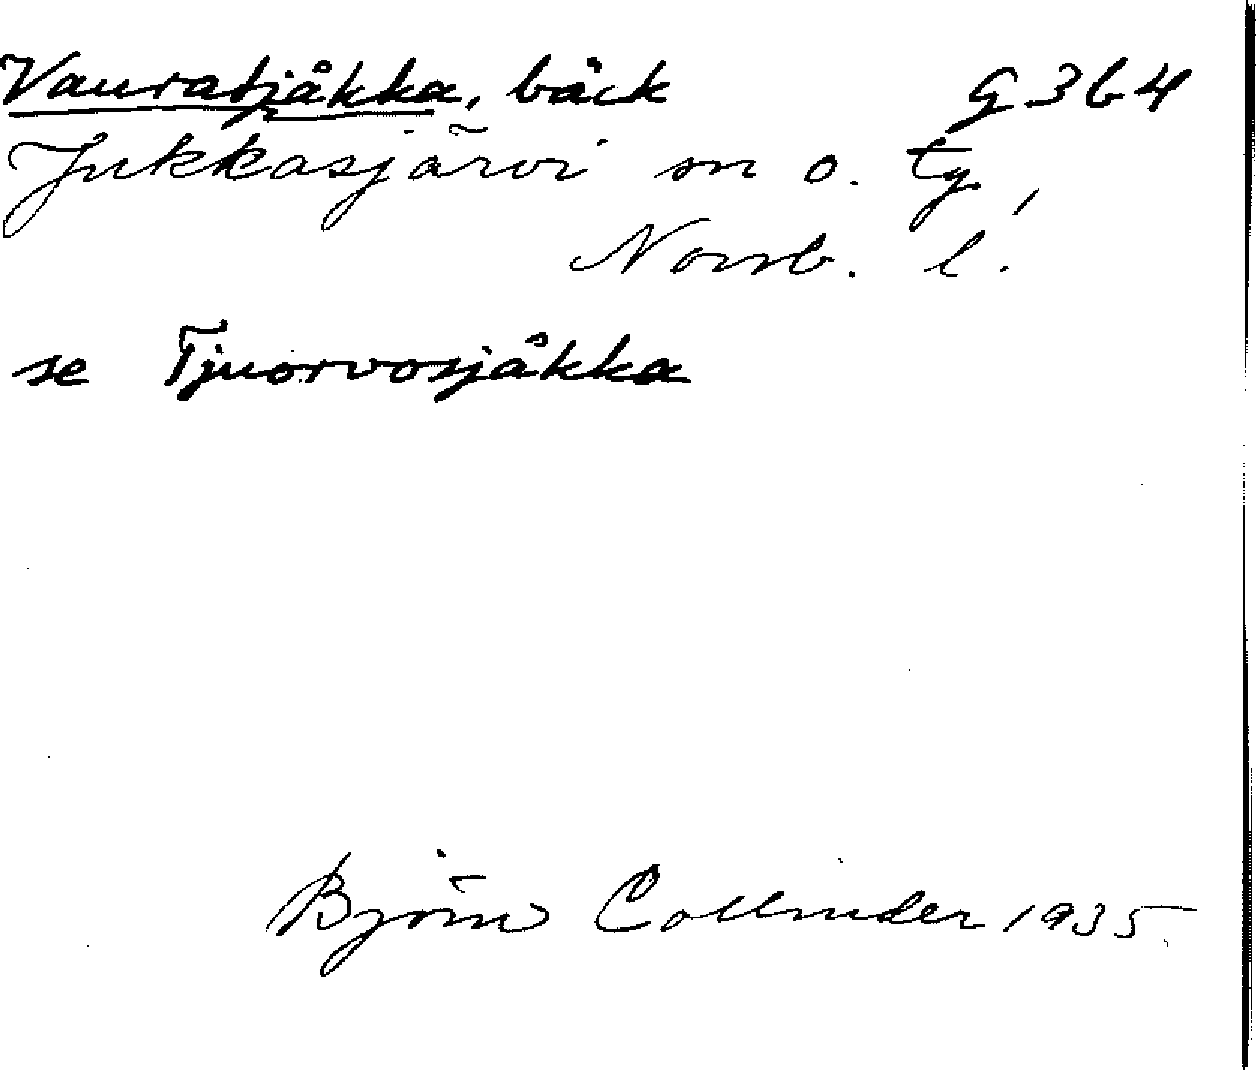 Vauratjåkka, bäck G 3 b 4
Jukkasjärvi sn o. tg,
Norrb. l.
se Tjuorvosjåkka
Björn Collinder 1935.